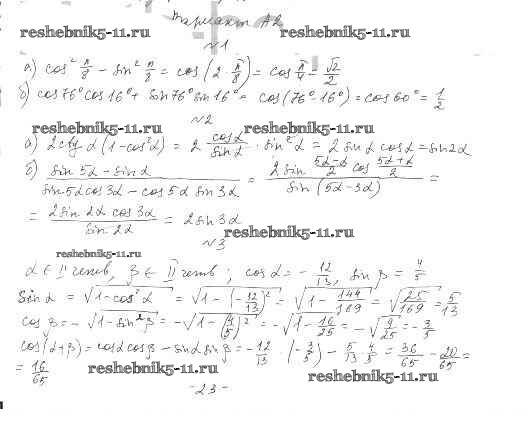 Вариант А2
reshebnik5-11.ru reshebnik5-11.ru
№1
а) cos² π/8 − sin² π/8 = cos(2·π/8) = cos π/4 = √2/2
б) cos76°cos16° + sin76°sin16° = cos(76°−16°) = cos60° = 1/2
№2
reshebnik5-11.ru reshebnik5-11.ru
а) 2ctg α (1−cos²α) = 2 cosα/sinα · sin²α = 2 sinα cosα = sin2α
б) (sin5α − sinα)/(sin5αcos3α − cos5α sin3α) = (2 sin (5α−α)/2 cos (5α+α)/2)/(sin(5α−3α)) =
= (2sin2α cos3α)/(sin2α) = 2sin3α
reshebnik5-11.ru
№3
reshebnik5-11.ru
α ∈ II четв, β ∈ II четв; cosα = −12/13, sinβ = 4/5
sinα = √(1−cos²α) = √(1−(−12/13)²) = √(1−144/169) = √(25/169) = 5/13
cosβ = −√(1−sin²β) = −√(1−(4/5)²) = −√(1−16/25) = −√(9/25) = −3/5
cos(α+β) = cosαcosβ − sinαsinβ = −12/13·(−3/5) − 5/13·4/5 = 36/65 − 20/65 =
= 16/65
reshebnik5-11.ru reshebnik5-11.ru
-23-